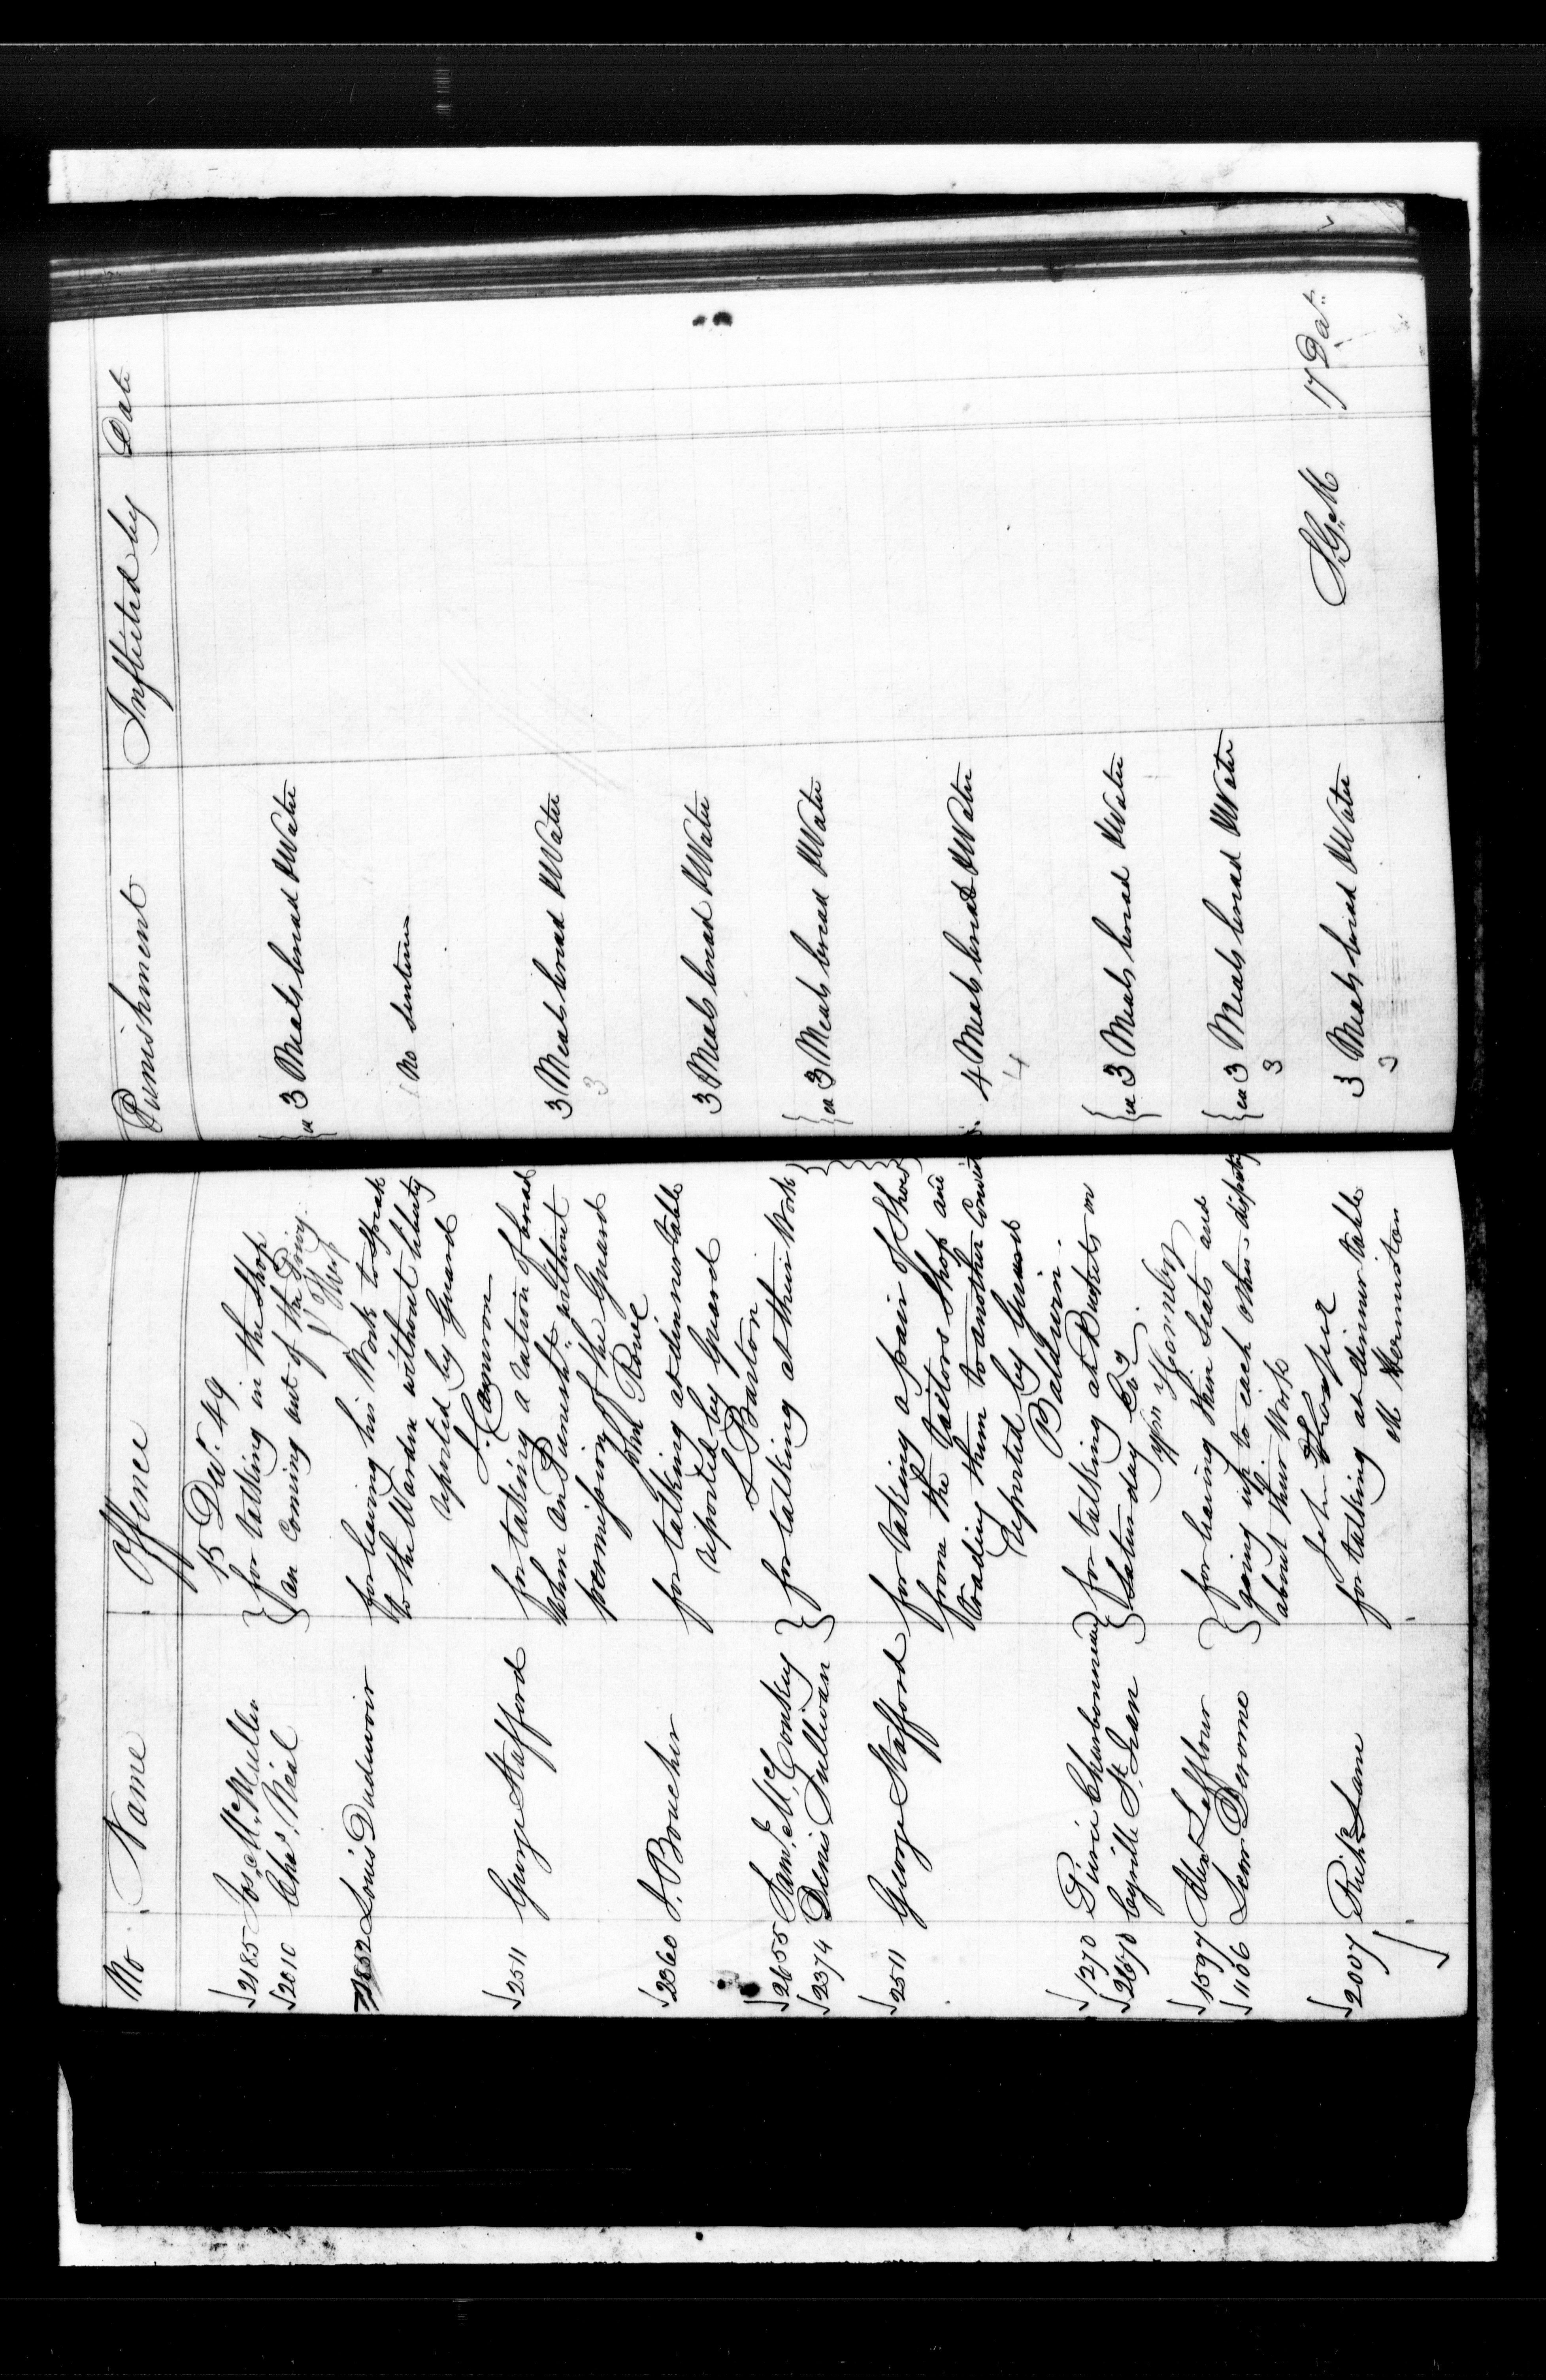 No Name Offence Punishment Inflicted by Date
15 Decr. 49
2185 Jos. McMullen for talking in the Shop
2010 Chas. Neal an coming out of the Privy. ea 3 Meals bread & Water
1852 Louis Dudevoir for leaving his Work to Speak
to the Warden without liberty no sentence
reported by Guard
Cameron
2511 George Stafford for taking a ration of bread
when on Punisht. without 3 Meals bread & Water
permission of the Guard 3
John Rowe
2360 J. Boucher for talking at dinner table
reported by Guard 3 Meals bread & Water
L Barton
2655 Saml. McConkey
2374 Denis Sullivan for talking at their Work ea 3 Meals bread & Water
2511 George Stafford for taking a pair of Shoes
from the tailors Shop and
trading them to another Convict 4 Meals bread & Water
reported by Guard 4
Baldwin.
1270 Pierre Charbonneau for talking at Buckets on
2670 Cyrille St. Jean Saturday ea 3 Meals bread & Water
Wm Hornsby
1597 Alex Lafflour for leaving their Seats and
1106 Leon Derome going up to each other disputing ea 3 Meals bread & Water
about their Work 3
John
2007 Richd. Lane for talking at dinner table 3 Meals bread & Water S.G.M 17 Dat.
M Hermiston 3